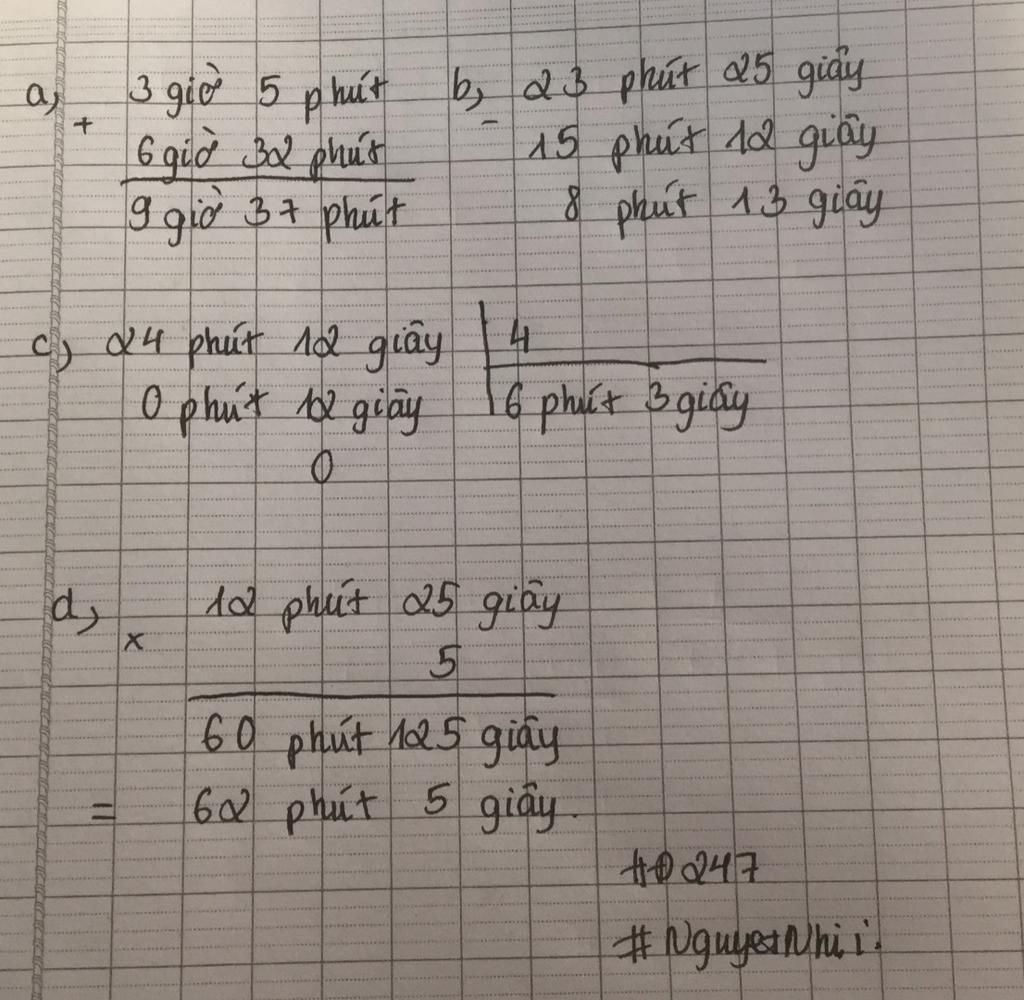 a, 3 giờ 5 phút
+
6 giờ 32 phút
9 giờ 37 phút
b, 23 phút 25 giây
-
15 phút 12 giây
8 phút 13 giây
c) 24 phút 12 giây | 4
0 phút 12 giây | 6 phút 3 giây
0
d, 12 phút 25 giây
x
5
60 phút 125 giây
= 62 phút 5 giây.
247
# NguyetNhii.